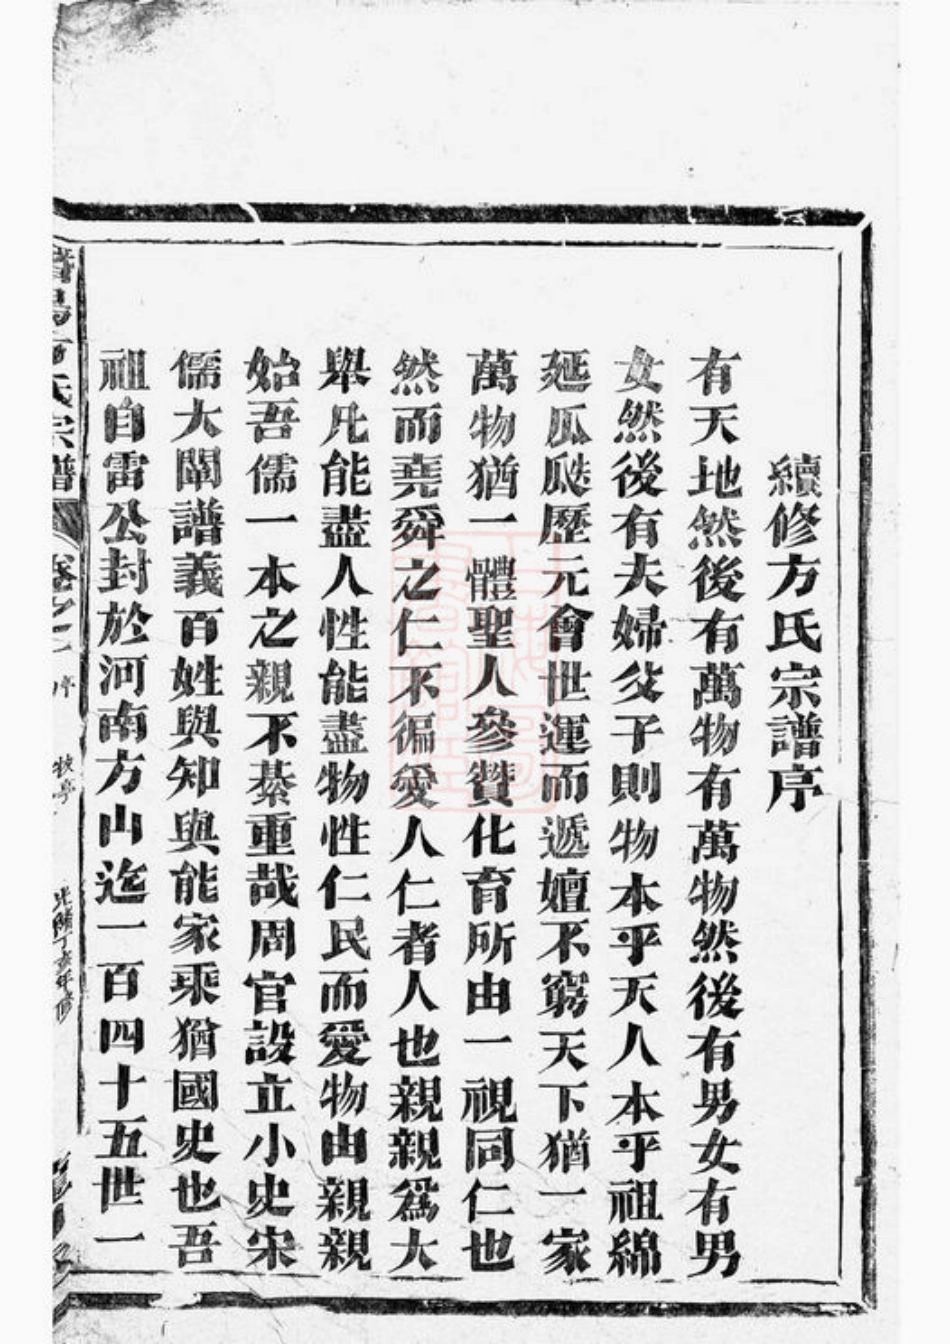 續修方氏宗譜序
有天地然後有萬物有萬物然後有男女有男
女然後有夫婦父子則物本乎天人本乎祖綿
延瓜瓞歷元會世運而遞嬗不窮天下猶一家
萬物猶一體聖人參贊化育所由一視同仁也
然而堯舜之仁不徧愛人仁者人也親親爲大
舉凡能盡人性能盡物性仁民而愛物由親親
始吾儒一本之親不綦重哉周官設立小史宋
儒大闡譜義百姓與知與能家乘猶國史也吾
祖自雷公封於河南方山迄一百四十五世一
氏宗譜 卷之 序